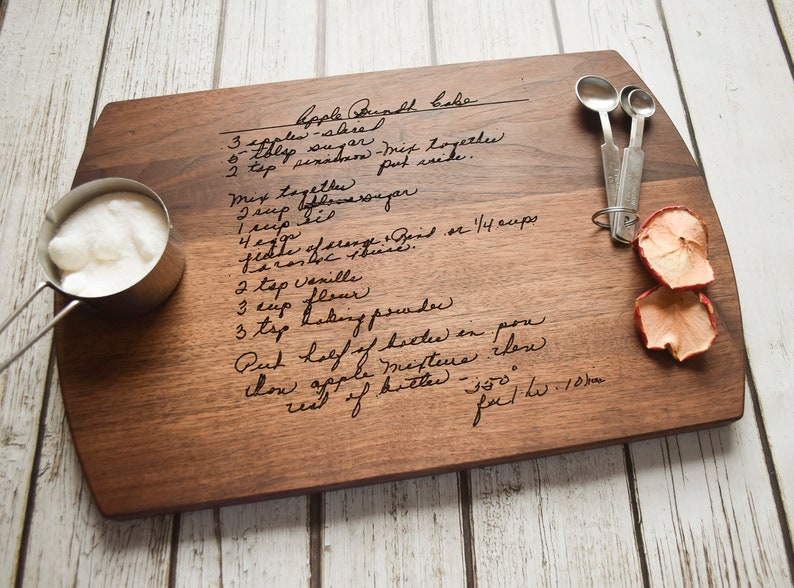 Apple Bundt Cake
3 apples - sliced
5 - tblsp sugar
2 tsp cinnamon - Mix together
put aside.
Mix together
2 cup sugar
1 cup oil
4 eggs
juice of orange + Rind or 1/4 cups
orange juice.
2 tsp vanilla
3 cup flour
3 tsp baking powder
Put half of batter in pan
then apple mixture then
rest of batter - 350°
for 1 hr. 10